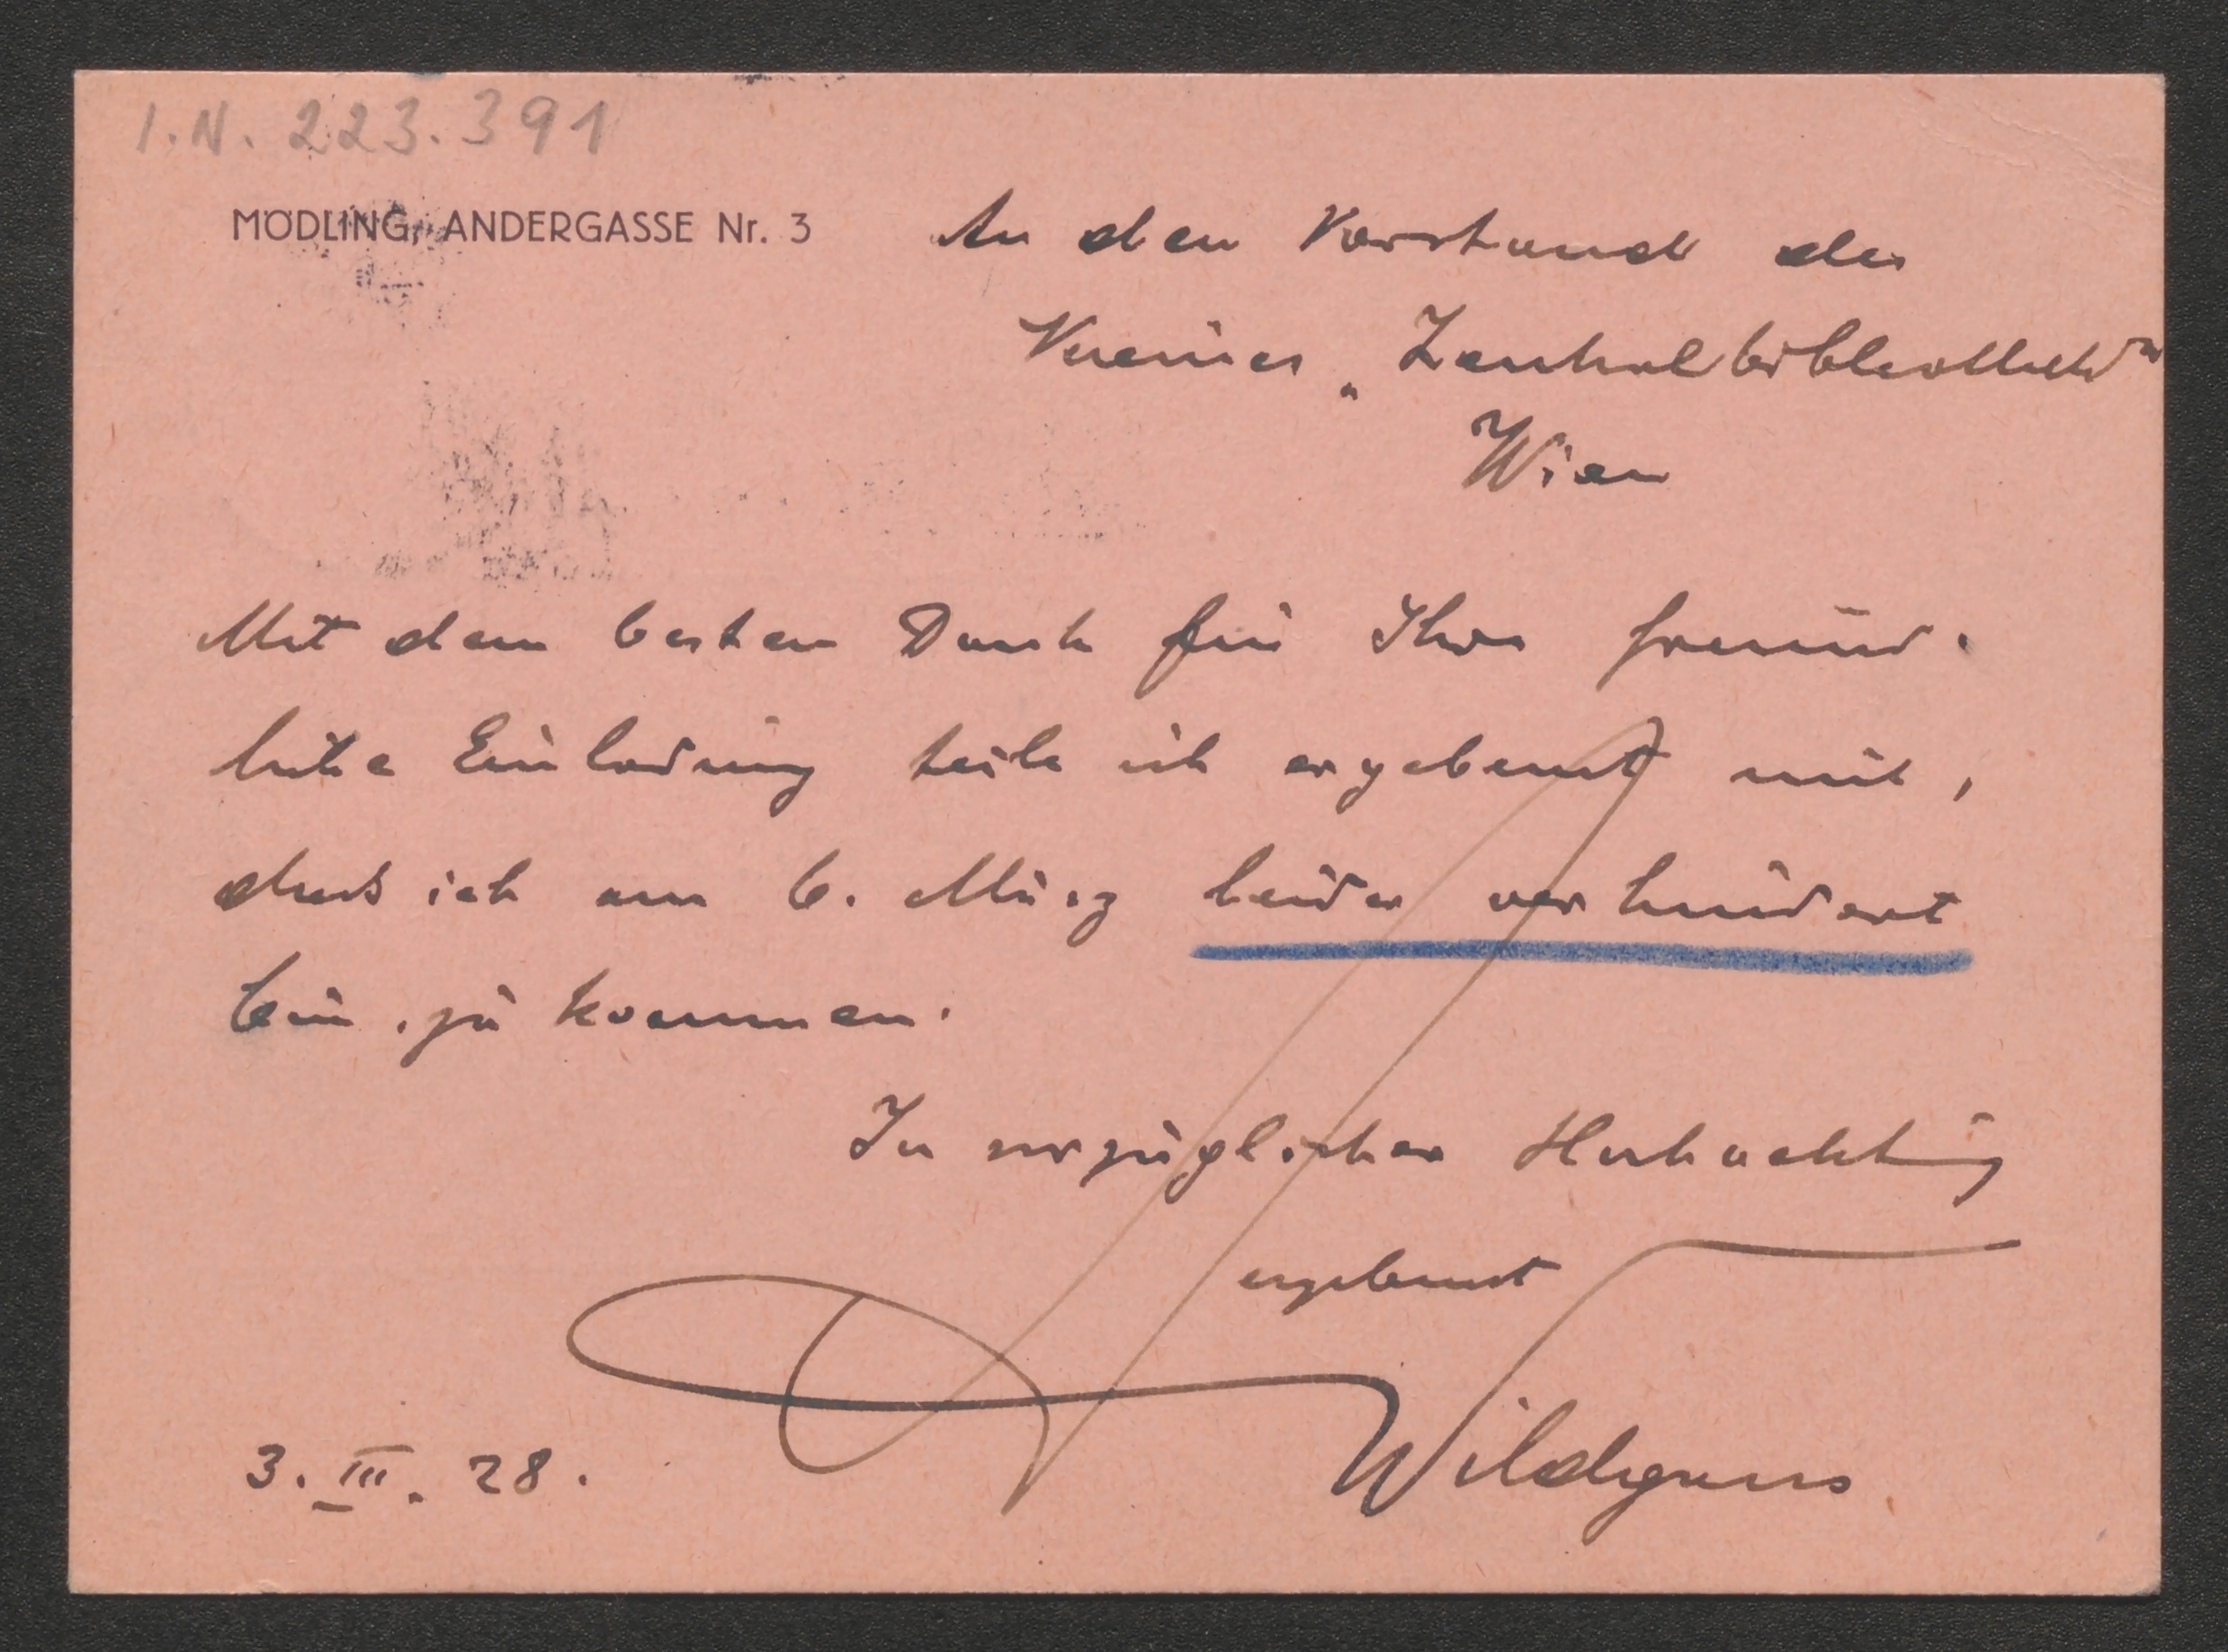 I.N. 223.391
MÖDLING, ANDERGASSE Nr. 3
An den Vorstand des
Vereines „Zentralbibliothek“
Wien
Mit dem besten Dank für Ihre freund-
liche Einladung teile ich ergebenst mit,
dass ich am 6. März leider verhindert
bin, zu kommen.
In vorzüglicher Hochachtung
ergebenst
A Wildgans
3. III. 28.